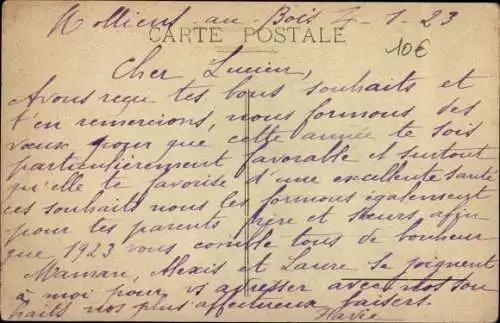 Molliens-au-Bois 7-1-23
CARTE POSTALE
10€
Cher Lucien,
Avons reçu tes bons souhaits et
t'en remercions, nous formons des
vœux pour que cette année te sois
particulièrement favorable et surtout
qu'elle te favorise d'une excellente santé
ces souhaits nous les formons également
pour tes parents frère et sœurs, afin
que 1923 vous comble tous de bonheur
Maman, Alexis et Laure se joignent
à moi pour vs adresser avec nos sou
haits nos plus affectueux baisers.
Flavie